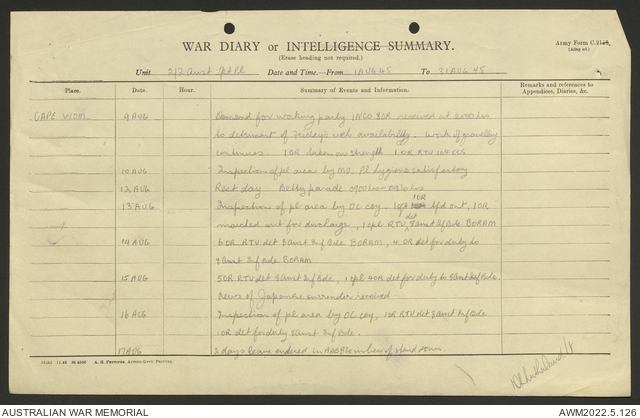 WAR DIARY or INTELLIGENCE SUMMARY.
(Erase heading not required.)
Army Form C.
Unit 2/2 Aust Pl Date and Time.—From 1 AUG 45 To 31 AUG 45
Place. Date. Hour. Summary of Events and Information. Remarks and references to Appendices, Diaries, &c.
CAPE WOM 9 AUG Demand for working party 1 NCO 8 OR received at 2000 hrs
to detriment of availability. Work of gravelling
continues 1 OR taken on strength 1 OR RTU
10 AUG Inspection of pl area by MO. Pl hygiene satisfactory
12 AUG Rest day Betty parade 0900 hrs
13 AUG Inspection of pl area by OC coy, 1 OR
marched out for discharge, 1 cpl RTU det 8 Aust Inf Bde BORAM
14 AUG 6 OR RTU det 8 Aust Inf Bde BORAM, 4 OR det for duty to
8 Aust Inf Bde BORAM
15 AUG 5 OR RTU det 8 Aust Inf Bde, 1 cpl 4 OR det for duty to 8 Aust Inf Bde.
News of Japanese surrender received
16 AUG Inspection of pl area by OC coy, 1 OR RTU det 8 Aust Inf Bde
1 OR det for duty 8 Aust Inf Bde.
17 AUG 2 days leave endered in in lieu of stand down.
A. H. PETTIFER, ACTING GOVT. PRINTER.
AUSTRALIAN WAR MEMORIAL
AWM2022.5.126